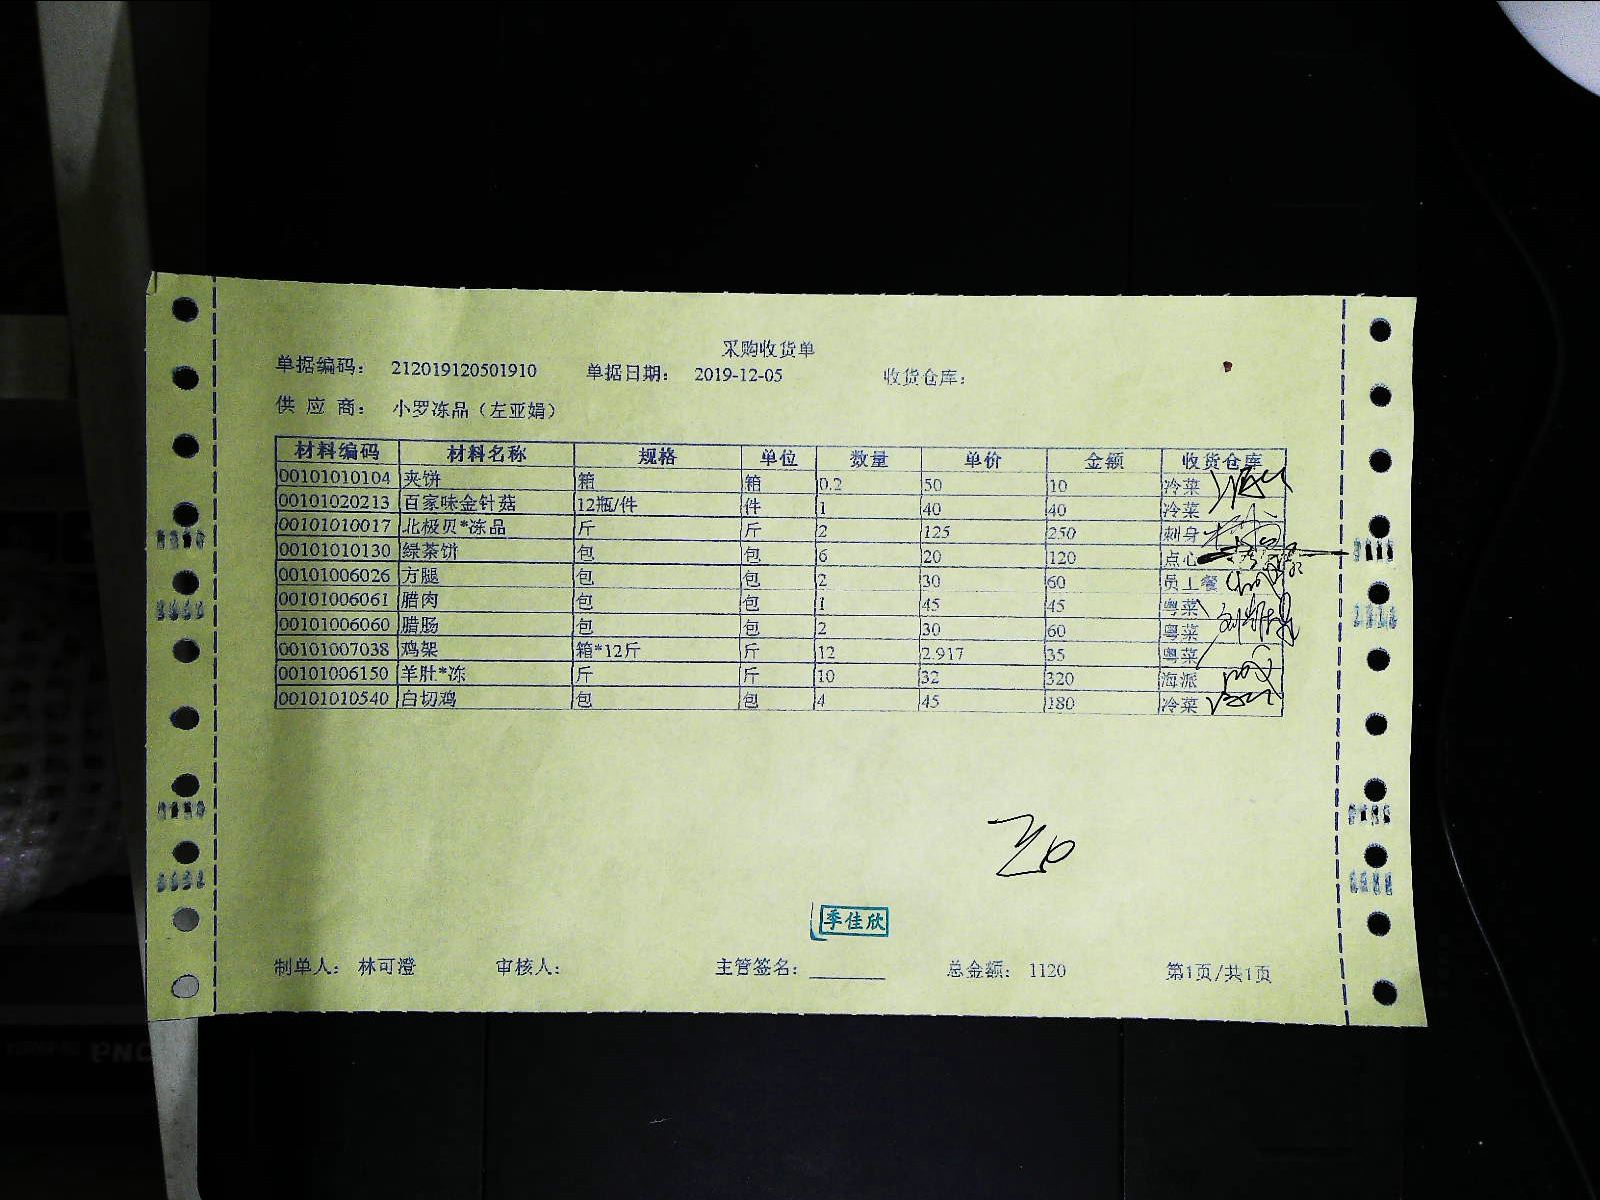 采购收货单
单据编码： 212019120501910 单据日期： 2019-12-05 收货仓库：
供 应 商： 小罗冻品（左亚娟）
材料编码 材料名称 规格 单位 数量 单价 金额 收货仓库
00101010104 夹饼 箱 箱 0.2 50 10 冷菜
00101020213 百家味金针菇 12瓶/件 件 1 40 40 冷菜
00101010017 北极贝*冻品 斤 斤 2 125 250 刺身
00101010130 绿茶饼 包 包 6 20 120 点心
00101006026 方腿 包 包 2 30 60 员工餐
00101006061 腊肉 包 包 1 45 45 粤菜
00101006060 腊肠 包 包 2 30 60 粤菜
00101007038 鸡架 箱*12斤 斤 12 2.917 35 粤菜
00101006150 羊肚*冻 斤 斤 10 32 320 海派
00101010540 白切鸡 包 包 4 45 180 冷菜
季佳欣
制单人： 林可澄 审核人： 主管签名： 总金额： 1120 第1页/共1页